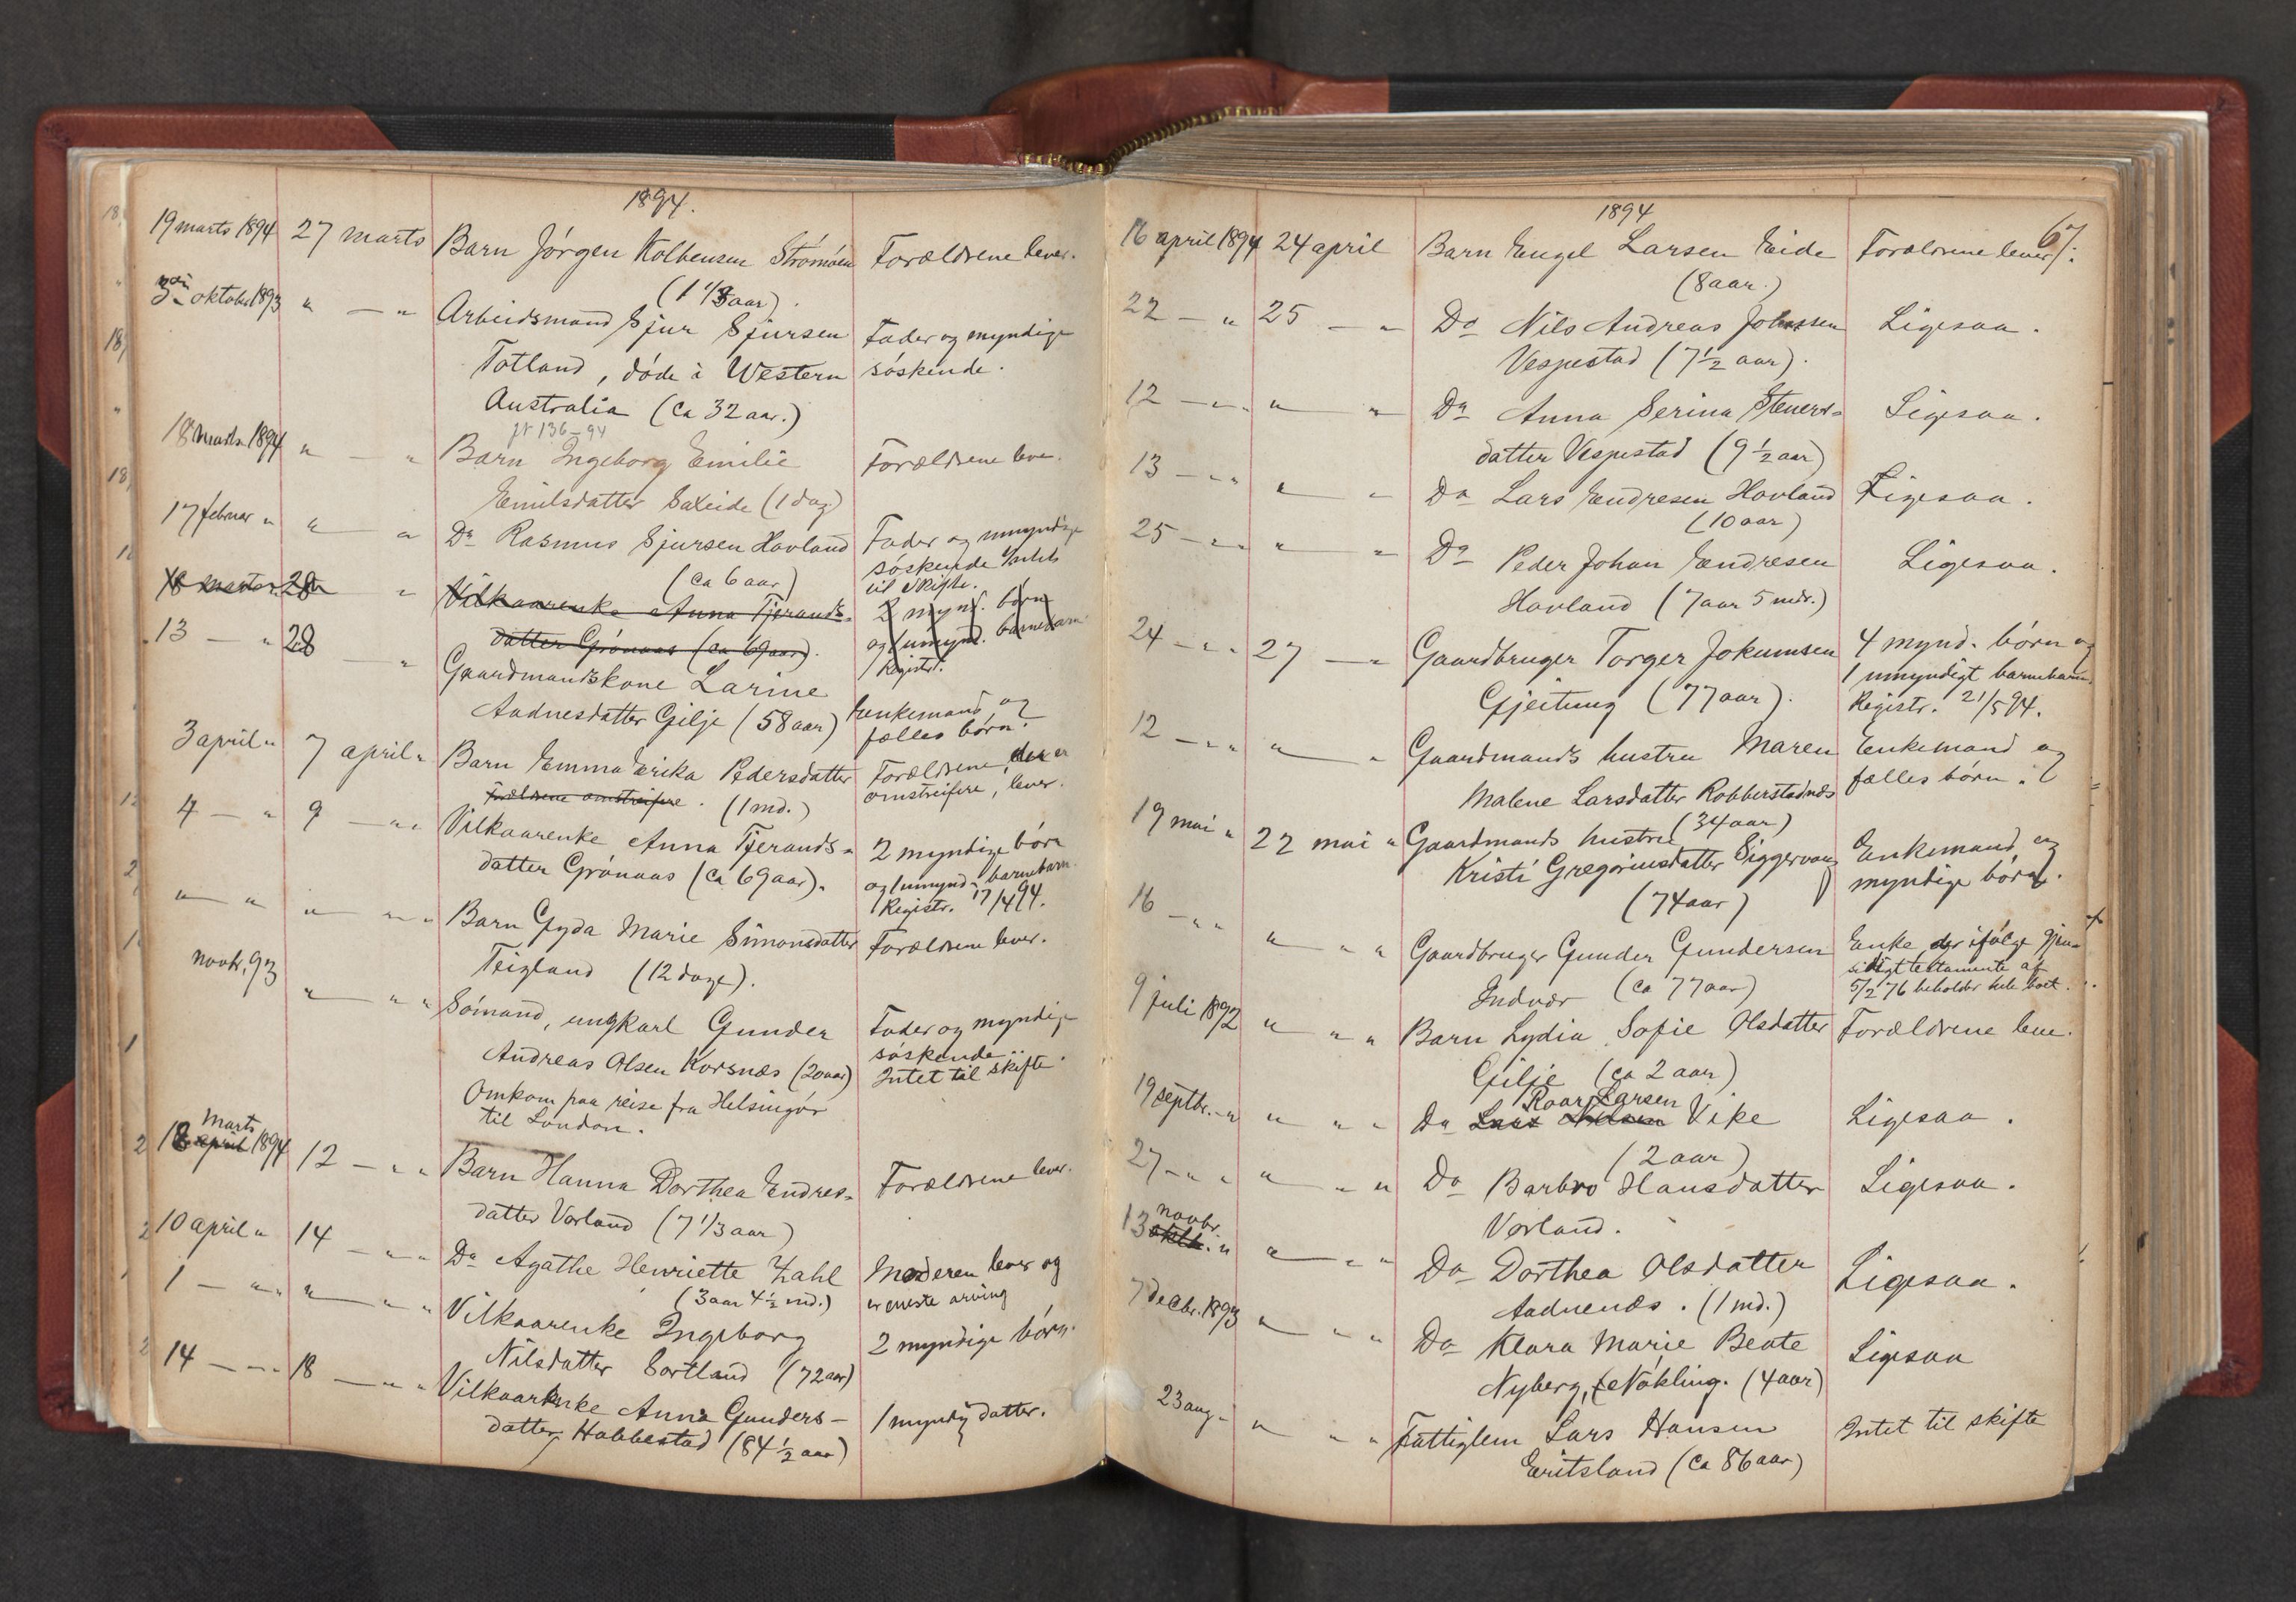 1894.
19 marts 1894 27 marts Barn Jórgen Kolbensen Strómóen Forældrene lever.
(1 1/3 aar).
3die oktober 1893 " — " Arbeidsmand Sjur Sjursen Fader og myndige
Totland, dóde i Western sóskende.
Australia (ca 32 aar.)
jr 136-94
18 marts 1894 " — " Barn Ingeborg Emilie Forældrene leve.
Emilsdatter Saleide (1 dag)
17 februar " " — " Do Rasmus Sjursen Hovland Fader og umyndige
(ca 6 aar) sóskende Intet
til skifte.
18 marts 28 " Vilkaarenke Anna Tjerands- 2 mynd. bórn
datter Grónaas (ca 69 aar). og 1 umynd. barnebarn
Registr.
13 — " 28 — " Gaardmandskone Larine
Aadnesdatter Gilje (58 aar) Enkemand og
fælles bórn.
3 april " 7 april " Barn Emma Erika Pedersdatter Forældrene, der er
Forældrene omstreifere. (1 md.) omstreifere, lever.
4 — " 9 — " " Vilkaarenke Anna Tjerands- 2 myndige bórn
datter Grónaas (ca 69 aar). og 1 umynd. barnebarn
Registr. 17/4 94.
" — " " — " " Barn Gyda Marie Simonsdatter Forældrene lever.
Teigland (12 dage).
novbr. 93 " — " " Sómand, ungkarl Gunder Fader og myndige
Andreas Olsen Korsnæs (20 aar) sóskende.
Intet til skifte.
Omkom paa reise fra Helsingór
til London.
marts
18 april 1894 12 — " " Barn Hanna Dorthea Endres- Forældrene lever.
datter Vorland (7 1/3 aar)
10 april " 14 — " " Do Agathe Henriette Zahl Moderen lever og
(3 aar 4 1/2 md.) er eneste arving
1 — " " " — " " Vilkaarenke Ingeborg 2 myndige bórn.
Nilsdatter Sortland (72 aar)
14 — " 18 — " " Vilkaarenke Anna Gunders- 1 myndig datter.
datter Habbestad (84 1/2 aar)
1894 67.
16 april 1894 24 april Barn Engel Larsen Eide Forældrene lever.
(8 aar.)
22 — " 25 — " Do Nils Andreas Johnssen Ligesaa.
Vespestad (7 1/2 aar).
12 — " " — " Do Anna Serina Steners- Ligesaa.
datter Vespestad (9 1/2 aar)
13 — " " — " Do Lars Endresen Hovland Ligesaa.
(10 aar)
25 — " " — " Do Peder Johan Endresen Ligesaa.
Hovland (7 aar 5 mdr.)
24 — " 27 — " Gaardbruger Torger Jokumsen 4 mynd. bórn og
1 umyndigt barnebarn.
Gjeitung (77 aar). Registr. 21/5 94.
12 — " " — " Gaardmands hustru Maren Enkemand og
Malene Larsdatter Robberstadnæs fælles bórn.
(34 aar)
19 mai " 22 mai " Gaardmands hustru
Kristi Gregoriusdatter Siggervaag Enkemand og
(74 aar) myndige bórn.
16 — " " — " " Gaardbruger Gunder Gundersen Enke, der ifólge gjen-
sidigt testamente af
Indvær (ca 77 aar) 5/2 76 beholder hele boet.
9 juli 1892 " — " " Barn Lydia Sofie Olsdatter Forældrene leve.
Gilje (ca 2 aar)
Roar Larsen
19 septbr. " " — " " Do Lars Nilsen Vike Ligesaa.
(2 aar)
27 — " " — " " Do Barbro Hansdatter Ligesaa.
Vorland.
novbr.
13 oktb. " " — " " Do Dorthea Olsdatter Ligesaa.
Aadnenæs. (1 md.)
7 decbr. 1893 " — " " Do Klara Marie Beate Ligesaa
Nyberg, Nókling. (4 aar)
23 aug. " — " " Fattiglem Lars Hansen Intet til skifte
Eeritsland (ca 86 aar)